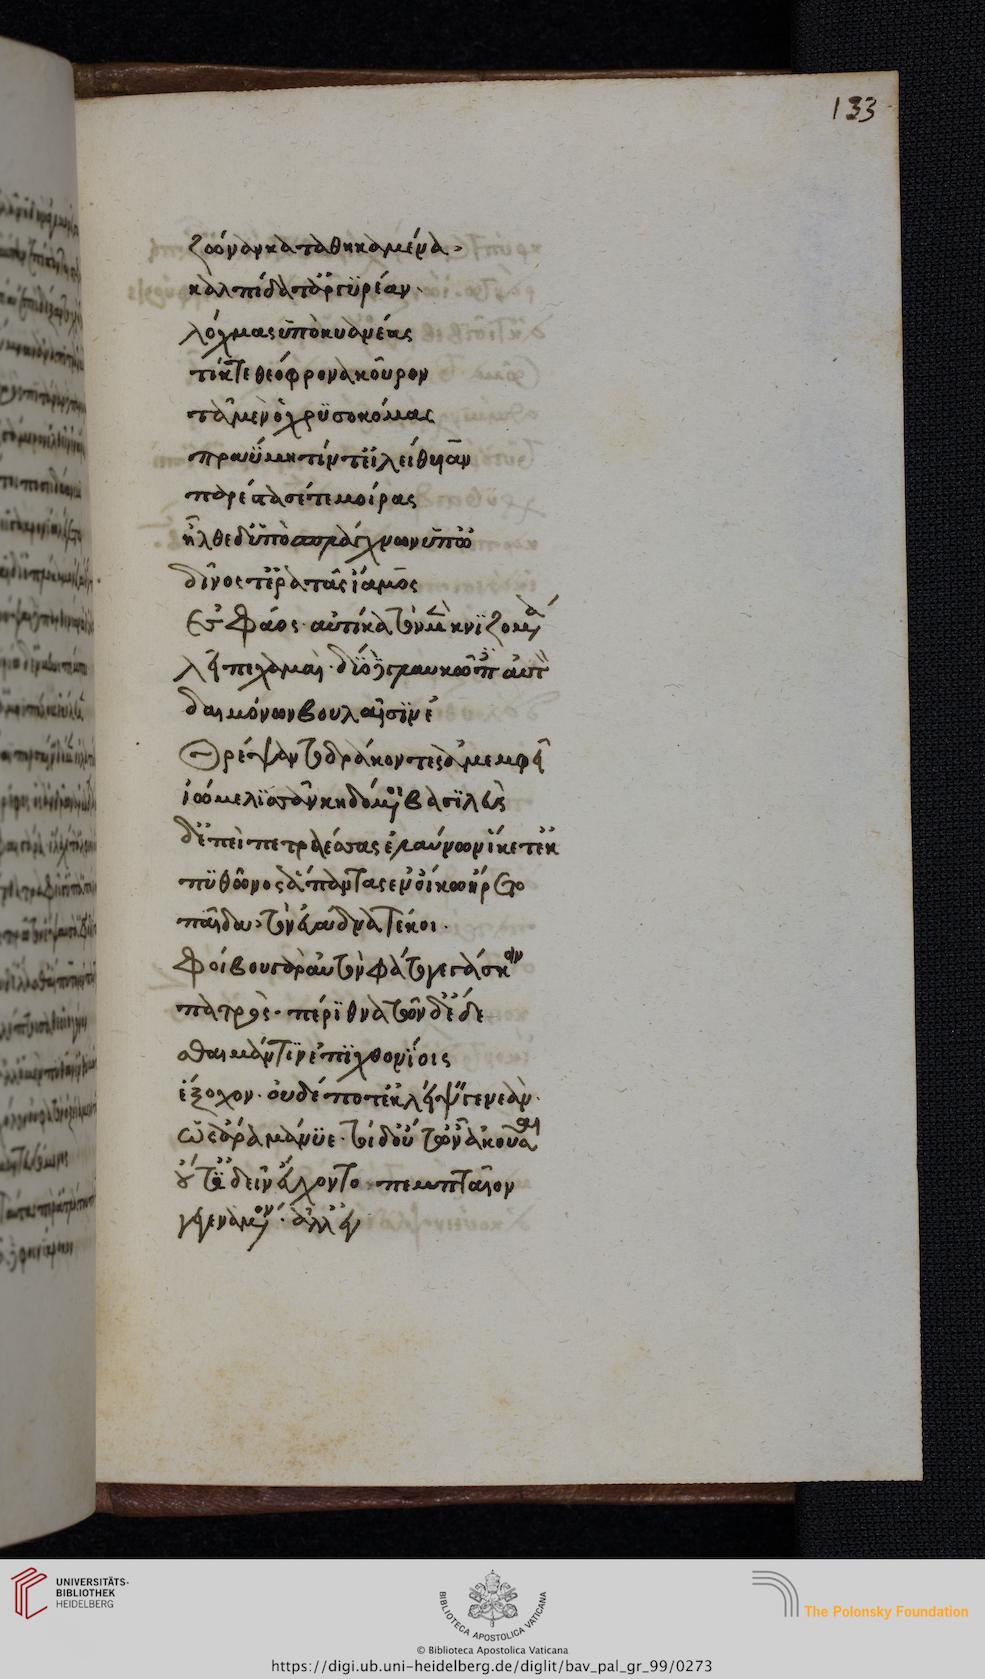 133
ζώναν καταθηκαμένα·
καλπίδα τ' ἀργυρέαν·
λόχμας ὑπὸ κυανέας
τίκτε θεόφρονα κοῦρον
τᾶ μὲν ὁ χρυσοκόμας
πραΰμητίν τ' εἰλείθυιαν
παρέστασέν τε μοίρας
ἦλθεν δ' ὑπὸ σπλάγχνων ὑπ' ὠ
δῖνος τ' ἐρατᾶς ἴαμος
ἐς φάος· αὐτίκα τὸν μὲν κνιζομένα
λεῖπε χαμαί· δύο δὲ γλαυκῶπες αὐτὸν
δαιμόνων βουλαῖσιν ἐ
θρέψαντο δράκοντες ἀμεμφεῖ
ἰῷ μελισσᾶν κηδόμενοι βασιλεὺς
δ' ἐπεὶ πετραέσσας ἐλαύνων ἵκετ' ἐκ
πυθῶνος ἅπαντας ἐν οἴκω εἴρετο
παῖδα· τὸν εὐάδνα τέκοι·
φοίβου γὰρ αὐτὸν φᾶ τὸ γεγάκειν
πατρός· πέρι θνατῶν δ' ἔσε
σθαι μάντιν ἐπιχθονίοις
ἔξοχον· οὐδέ ποτ' ἐκλείψειν γενεάν·
ὣς ἄρα μάνυε· τοὶ δ' οὔτ' ὦν ἀκοῦσαι
οὔτ' ἰδεῖν εὔχοντο πεμπταῖον
γεγεναμένον· ἀλλ' ἐν
UNIVERSITÄTS-
BIBLIOTHEK
HEIDELBERG
BIBLIOTECA APOSTOLICA VATICANA
The Polonsky Foundation
© Biblioteca Apostolica Vaticana
https://digi.ub.uni-heidelberg.de/diglit/bav_pal_gr_99/0273